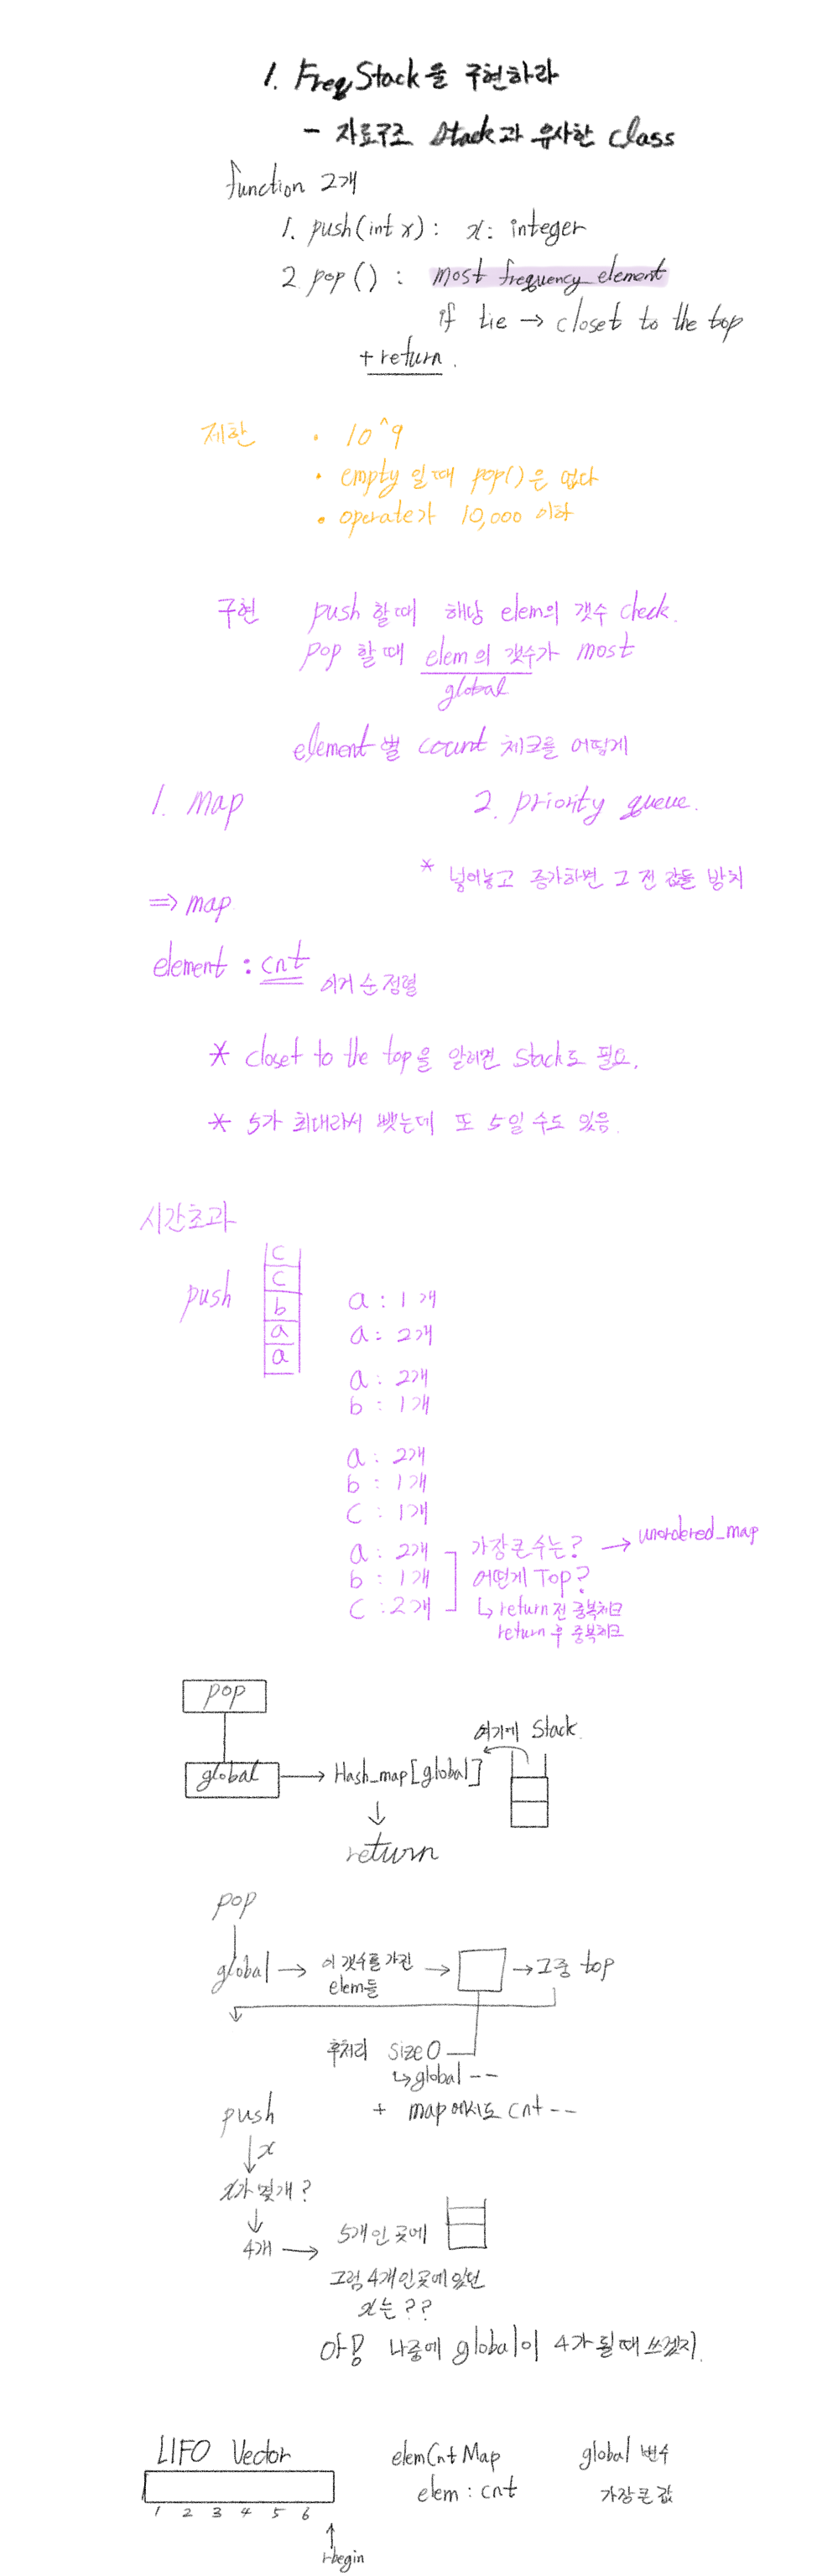 1. FreqStack을 구현하라
- 자료구조 stack과 유사한 class
function 2개
1. push(int x) : x: integer
2 pop() : most frequency element
if tie → closet to the top
+ return .
제한 · 10^9
· empty 일때 pop()은 없다
· operate가 10,000 이하
구현 push 할때 해당 elem의 갯수 check.
pop 할때 elem의 갯수가 most
global
element별 count 체크를 어떻게
1. Map 2. priority queue.
* 넣어놓고 증가하면 그 전 값들 방치
⇒ map
element : cnt 이거 순 정렬
* closet to the top을 알려면 stack도 필요.
* 5가 최대라서 뺏는데 또 5일 수도 있음.
시간초과
push
c
c
b
a
a
a : 1개
a : 2개
a : 2개
b : 1개
a : 2개
b : 1개
c : 1개
a : 2개 가장큰수는? → unordered_map
b : 1개 어떤게 Top?
c : 2개 ↳ return 전 중복체크
return 후 중복체크
pop
여기에 Stack.
global → Hash_map[global]
↓
return
pop
global → 이 갯수를 가진 elem들 → → 그중 top
후처리 size 0
↳ global --
+ map에서도 cnt --
push
↓ x
x가 몇개?
↓
4개 → 5개인 곳에
그럼 4개인곳에 있던
x는??
아! 나중에 global이 4가 될때 쓰겠지.
LIFO Vector elemCntMap global 변수
elem : cnt 가장큰 값
1 2 3 4 5 6
↑
rbegin